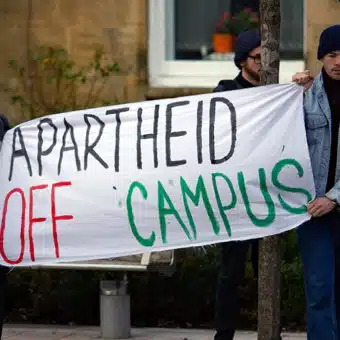 APARTHEID
OFF CAMPUS